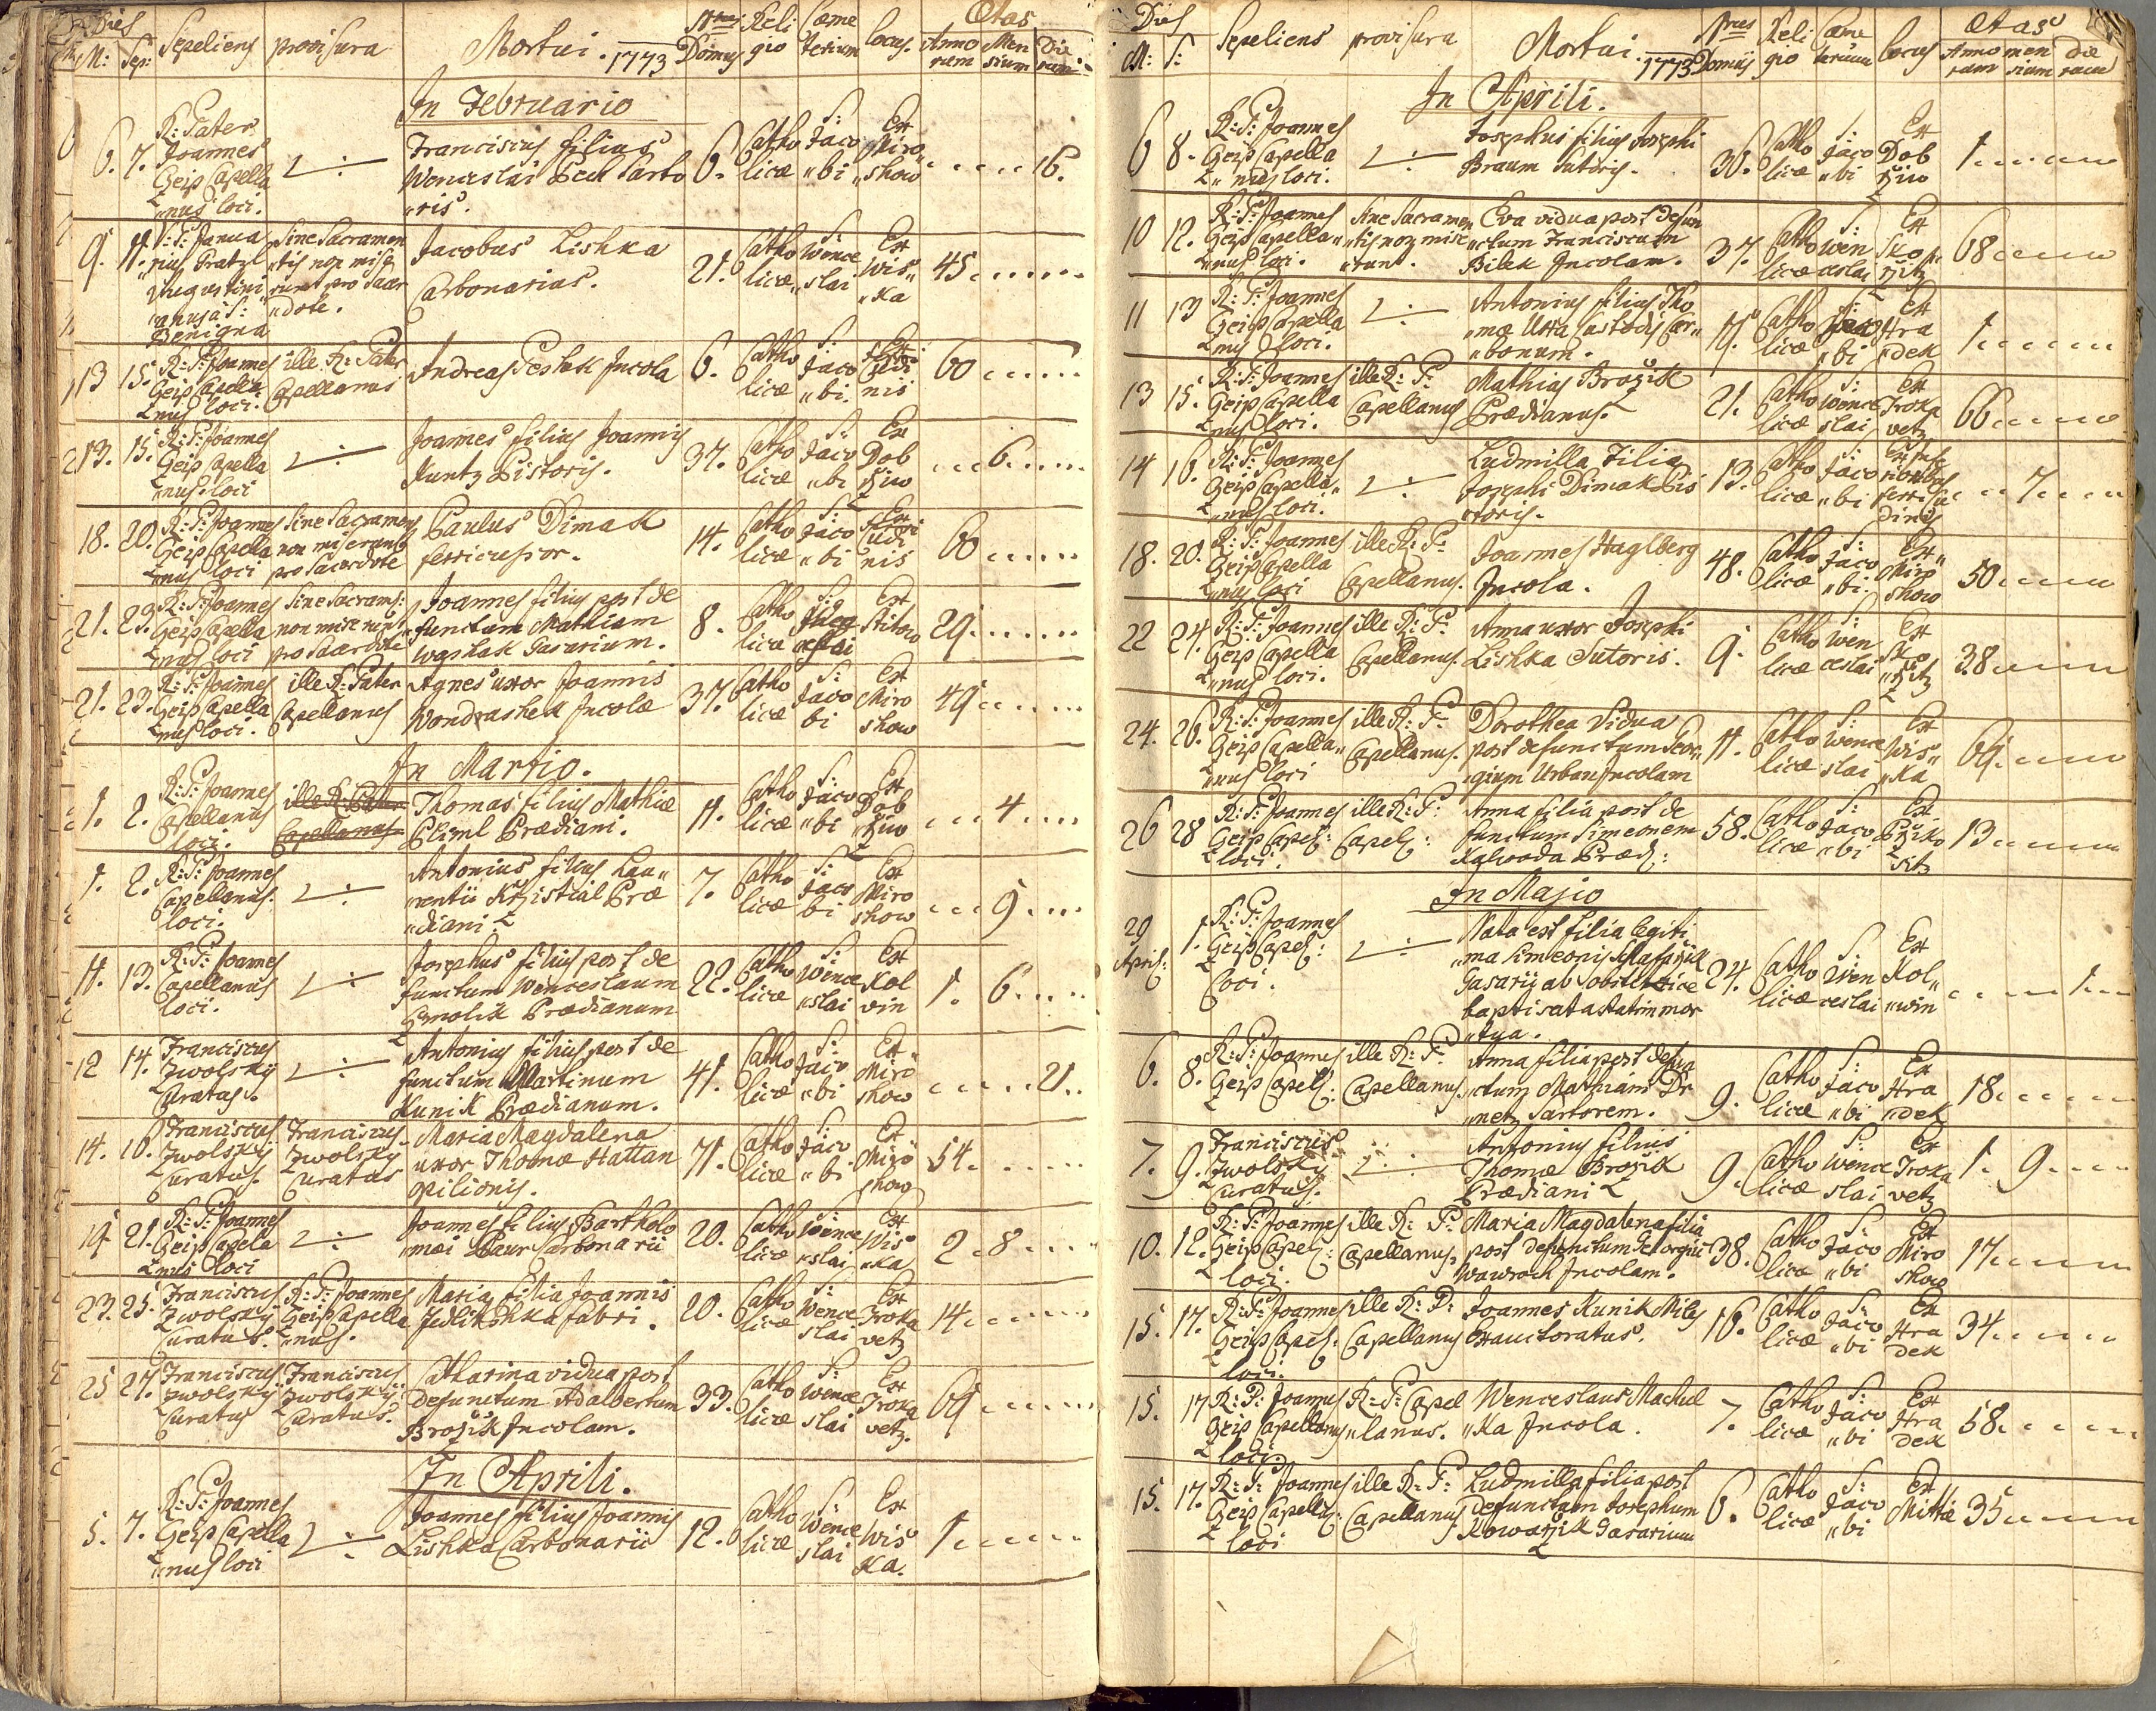 Dies Sepeliens provisura Mortui. 1773 Nrus Domus Religio Cæmeterium Locus Ætas
M: Sep: Annorum Mensium Dierum
In Februario
6. 7. R: Pater Joannes Geip Capellanus loci. Franciscus filius Wenceslai Pech Sartoris. 6. Catholicæ S: Jacobi Ex Miroshow 16.
9. 11. Sine Sacramentis non miserunt pro Sacerdote. Jacobus Lishka Carbonarius. 21. Catholicæ S: Wenceslai Ex Wiska 45
13 15. R: P: Joannes Geip Capellanus loci. ille R: Pater Capellanus Andreas Peshek Incola 6. Catholicæ S: Jacobi 60
13. 15. R: P: Joannes Geip Capellanus loci Joannes filius Joannis Kuntz Pistoris. 37. Catholicæ S: Jacobi Ex Dobřiw 6.
18. 20. R: P: Joannes Geip Capellanus loci Sine Sacramentis non miserunt pro Sacerdote Paulus Dimak 14. Catholicæ S: Jacobi 60
21. 23. R: P: Joannes Geip Capellanus loci Sine Sacram: non miserunt pro Sacerdote Joannes filius post defunctum Mathiam Washak Gasarium. 8. Catholicæ Ex Stitow 29
21. 23. R: P: Joannes Geip Capellanus loci. ille R: Pater Capellanus Agnes uxor Joannis Wondrashek Incolæ 37. Catholicæ S: Jacobi Ex Miroshow 49
In Martio.
1. 2. R: P: Joannes Capellanus loci. ille R: Pater Capellanus Thomas filius Mathiæ Prædiani. 11. Catholicæ S: Jacobi Ex Dobřiw 4
1. 2. R: P: Joannes Capellanus loci. Antonius filius Laurentii Křistial Prædiani. 7. Catholicæ S: Jacobi Ex Miroshow 9
11. 13. R: P: Joannes Capellanus loci. Josephus filius post defunctum Wenceslaum Prædianum 22. Catholicæ S: Wenceslai Ex Kolvin 1. 6.
12 14. Franciscus Zwolsky Curatus. Antonius filius post defunctum Martinum Kunik Prædianum. 41. Catholicæ S: Jacobi Ex Miroshow 21.
14. 16. Franciscus Zwolsky Curatus. Franciscus Zwolsky Curatus Maria Magdalena uxor Thomæ Hattan opilionis. 71. Catholicæ S: Jacobi Ex Miroshow 54.
19. 21. R: P: Joannes Geip Capellanus loci Joannes filius Bartholomæi Baur Carbonarii 20. Catholicæ S: Wenceslai Ex Wiska 2 8
23. 25. Franciscus Zwolsky Curatus. R: P: Joannes Geip Capellanus. Maria filia Joannis Jedlitshka fabri. 20. Catholicæ S: Wenceslai Ex Trokavetz 14
25 27. Franciscus Zwolsky Curatus Franciscus Zwolsky Curatus. Catharina vidua post defunctum Adalbertum Brožik Incolam. 33. Catholicæ S: Wenceslai Ex Trokavetz. 69
In Aprili.
5. 7. R: P: Joannes Geip Capellanus loci Joannes filius Joannis Lishka Carbonarii 12. Catholicæ S: Wenceslai Ex Wiska. 1
Dies Sepeliens provisura Mortui. 1773 Nrus Domus Religio Cæmeterium Locus Ætas
M: S: Annorum mensium dierum
In Aprili.
6 8. R: P: Joannes Geip Capellanus loci. Josephus filius Josephi Braum Sutoris. 36. Catholicæ S: Jacobi Ex Dobřiw 1
10 12. R: P: Joannes Geip Capellanus loci. Sine Sacramentis non miserunt. Eva vidua post defunctum Franciscum Bilek Incolam. 37. Catholicæ S: Wenceslai Ex Skořitz 68
11 13 R: P: Joannes Geip Capellanus loci. Antonius filius Thomæ Uxa Custodis Carbonum. 19. Catholicæ Ex Hradek 1
13 15. R: P: Joannes Geip Capellanus loci. ille R: P: Capellanus Mathias Brožik Prædianus. 21. Catholicæ S: Wenceslai Ex Trokavetz 66
14 16. R: P: Joannes Geip Capellanus loci. Ludmilla Filia Josephi Dimak Pistoris. 13. Catholicæ S: Jacobi 7
18. 20. R: P: Joannes Geip Capellanus loci ille R: P: Capellanus. Joannes Haglberg Incola. 48. Catholicæ S: Jacobi Ex Miroshow 50
22 24. R: P: Joannes Geip Capellanus loci. ille R: P: Capellanus. Anna uxor Josephi Lishka Sutoris. 9. Catholicæ S: Wenceslai Ex Skořitz 38
24. 26. R: P: Joannes Geip Capellanus loci ille R: P: Capellanus. Dorothea Vidua post defunctum Georgium Urban Incolam 11. Catholicæ S: Wenceslai Ex Wiska 69
26 28 R: P: Joannes Geip Capel: loci. ille R: P: Capel: Anna filia post defunctum Simeonem Kalwoda Præd: 58. Catholicæ S: Jacobi Ex Přikositz 13
In Majio
29 April: 1. R: P: Joannes Geip Capel: Loci. Nata est filia legitima Simeonis Gasarii ab obstetrice baptisata statim mortua. 24. Catholicæ S: Wenceslai Ex Kolwin 1
6. 8. R: P: Joannes Geip Capel: ille R: P: Capellanus. Anna filia post defunctum Mathiam Drnetz Sartorem. 9. Catholicæ S: Jacobi Ex Hradek 18
7. 9. Franciscus Zwolsky Curatus. Antonius filius Thomæ Brožik Prædiani 9. Catholicæ S: Wenceslai Ex Trokavetz 1. 9
10. 12. R: P: Joannes Geip Capel: loci. ille R: P: Capellanus. Maria Magdalena filia post defunctum Georgium Wawroch Incolam. 38. Catholicæ S: Jacobi Ex Miroshow 17
15. 17. R: P: Joannes Geip Capel: loci. ille R: P: Capellanus Joannes Kunik Miles Exauctoratus. 16. Catholicæ S: Jacobi Ex Hradek 34
15. 17 R: P: Joannes Geip Capellanus loci. R: P: Capellanus. Wenceslaus Machulka Incola. 7. Catholicæ S: Jacobi Ex Hradek 58.
15. 17. R: P: Joannes Geip Capellus: loci ille R: P: Capellanus Ludmilla filia post defunctum Josephum Kowařik Gasarium 6. Catholicæ S: Jacobi Ex Mittiæ 35